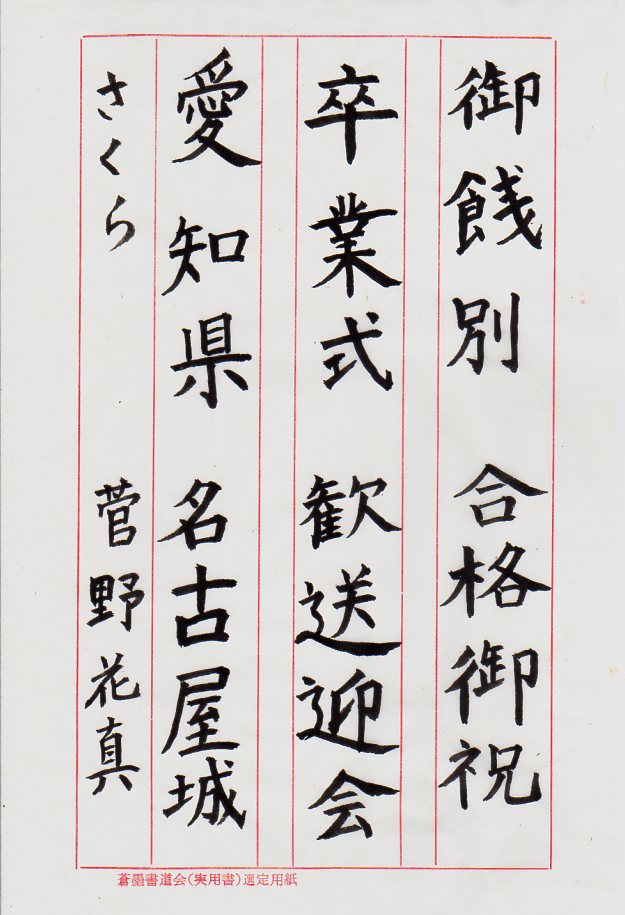 御餞別 合格御祝
卒業式 歓送迎会
愛知県 名古屋城
さくら 菅野花真
蒼墨書道会(実用書)選定用紙